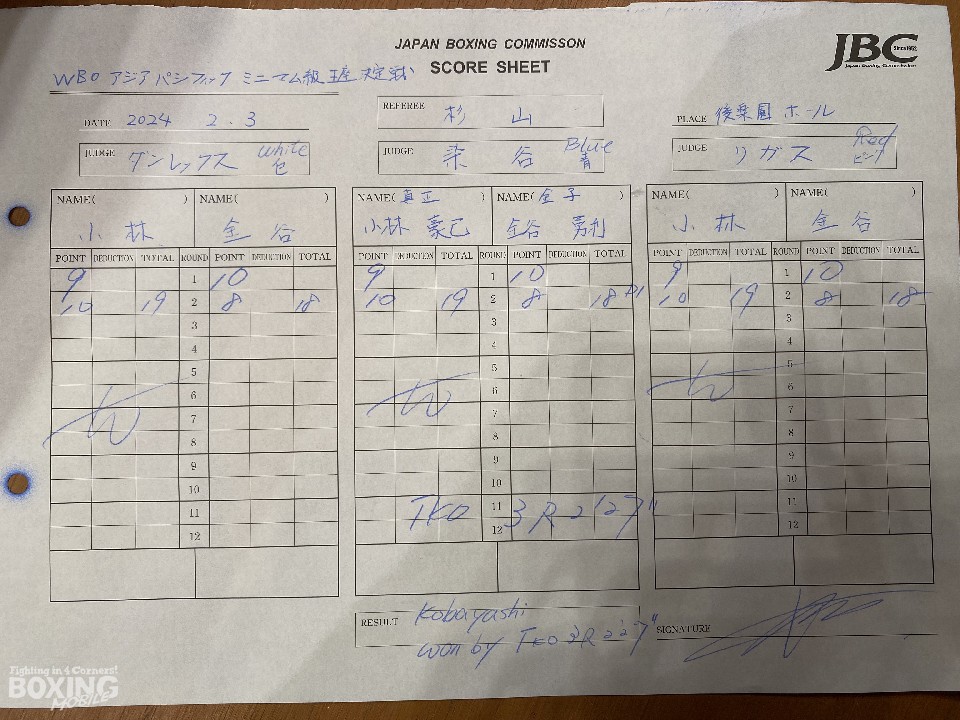 JAPAN BOXING COMMISSON
SCORE SHEET
JBC Since 1952
Japan Boxing Commission
WBO アジアパシフィック ミニマム級 王座決定戦
DATE 2024 2.3
REFEREE 杉山
PLACE 後楽園ホール
JUDGE ダンレックス White 白
JUDGE 染谷 Blue 青
JUDGE リガス Red ピンク
NAME( ) NAME( ) NAME(真正) NAME(金子) NAME( ) NAME( )
小林 金谷 小林豪己 金谷勇利 小林 金谷
POINT DEDUCTION TOTAL ROUND POINT DEDUCTION TOTAL POINT DEDUCTION TOTAL ROUND POINT DEDUCTION TOTAL POINT DEDUCTION TOTAL ROUND POINT DEDUCTION TOTAL
9 1 10 9 1 10 9 1 10
10 19 2 8 18 10 19 2 8 18 D1 10 19 2 8 18
3 3 3
4 4 4
5 5 5
6 6 6
7 7 7
8 8 8
9 9 9
10 10 10
11 11 11
12 12 12
TKO 3R 2'27"
RESULT Kobayashi
won by TKO 3R 2'27"
SIGNATURE
Fighting in 4 Corners!
BOXING
MOBILE